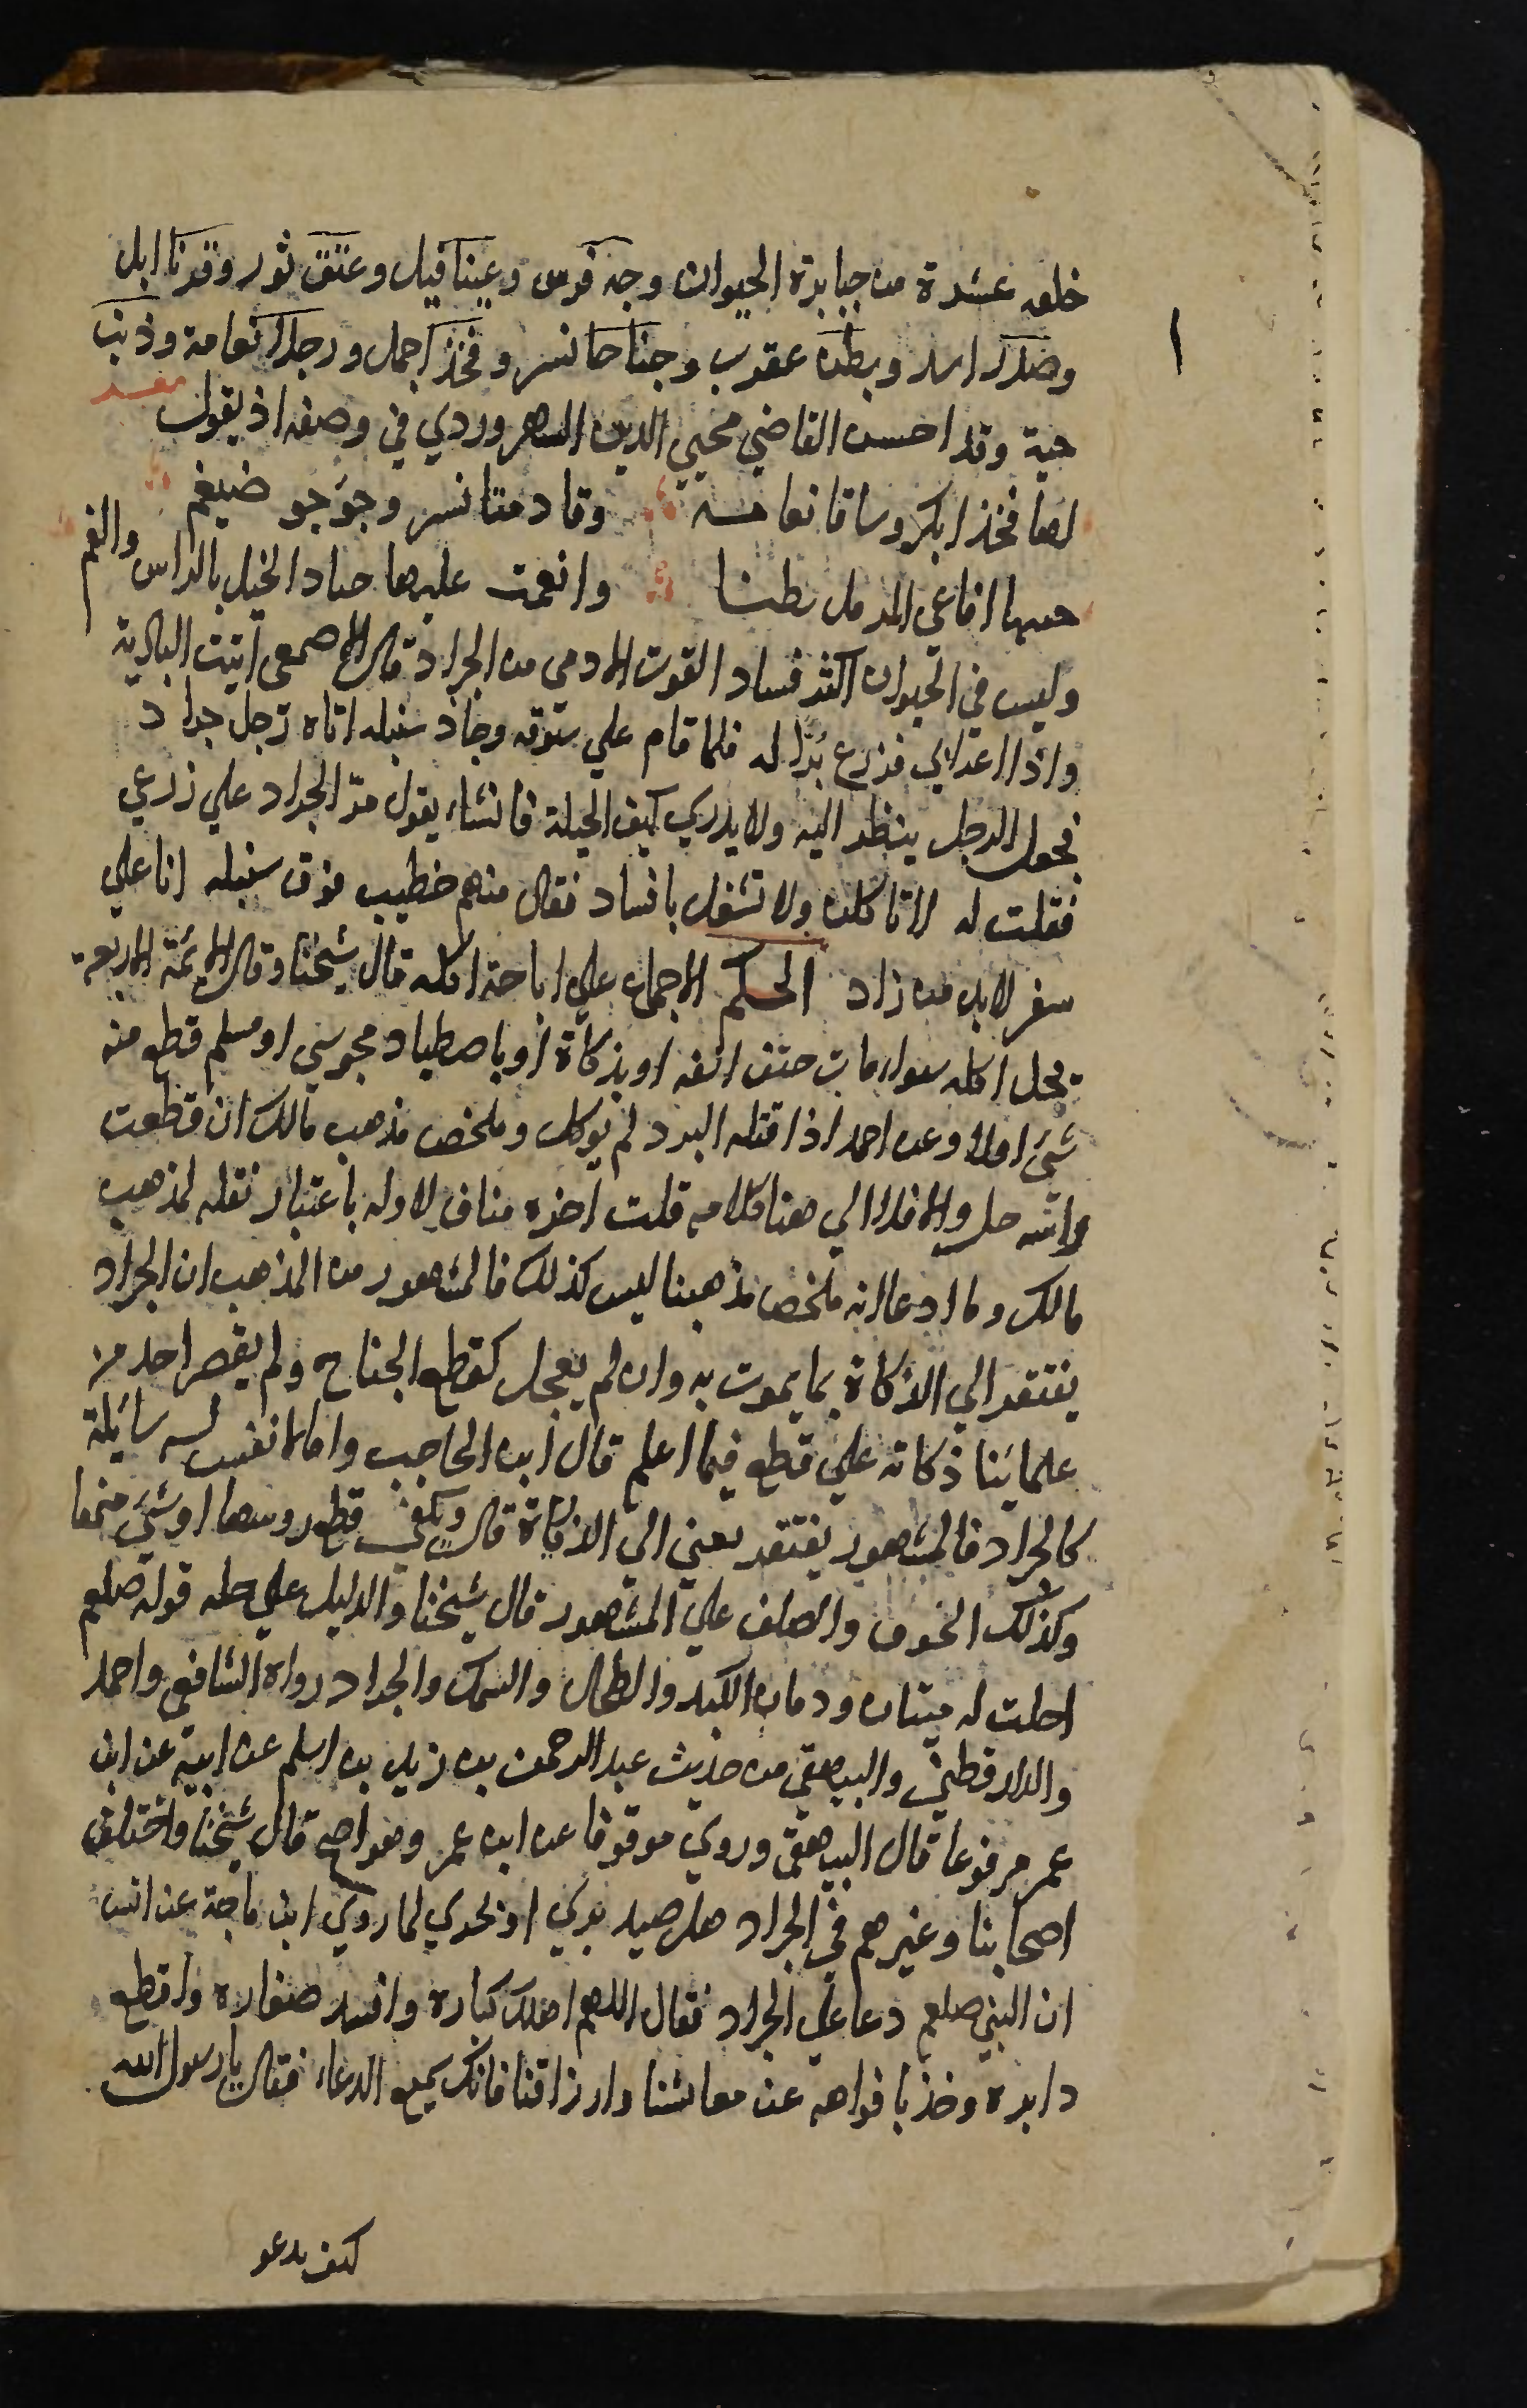 خلقه عشرة من جبابرة الحيوان وجه فرس وعينا فيل وعنق ثور وقرنا ابل
وصدر اسد وبطن عقرب وجناحا نسر وفخذا جمل ورجلا نعامة وذنب
حية وقد احسن القاضي محيي الدين السهروردي في وصفه اذ يقول
لها فخذا بكر وساقا نعامة وقادمتا نسر وجؤجو ضيغم
حبتها افاعي الرمل بطنا وانعمت عليها جياد الخيل بالراس والفم
وليس في الحيوان اكثر فسادا لقوت الادمي من الجراد قال الاصمعي اتيت البادية
واذا اعرابي فزرع برا له فلما قام علي سوقه وجاد سنبله اتاه رجل جراد
فجعل الرجل ينظر اليه ولا يدري كيف الحيلة فانشاء يقول مر الجراد علي زرعي
فقلت له لا تاكلن ولا تشغل بافساد فقال منهم خطيب فوق سنبله انا علي
سفر لابد من زاد الحكم الاجماع علي اباحة اكله قال شيخنا وقال الايمة الاربعة
يحل اكله سواء مات حتف انفه او بذكاة او باصطياد مجوسي او مسلم قطع منه
شيء او لا وعن احمد اذا قتله البرد لم يوكل وملخص مذهب مالك ان قطعت
راسه حل والا فلا الي هنا كلامه قلت اخره مناف لاوله باعتبار نقله لمذهب
مالك وما ادعا انه ملخص مذهبنا ليس كذلك فالمشهور من المذهب ان الجراد
يفتقر الي الذكاة بما يموت به وان لم يعجل كقطع الجناح ولم يقصر احد من
علمائنا ذكاته علي قطع فيما اعلم قال ابن الحاجب واما ما لا نفس له سائلة
كالجراد فالمشهور يفتقر يعني الي الذكاة قال ويكفي قطع روسها او شيء منها
وكذلك الحرق والصلق علي المشهور قال شيخنا والدليل علي حله قوله صلعم
احلت لنا ميتتان ودمان الكبد والطحال والسمك والجراد رواه الشافعي واحمد
والدارقطني والبيهقي من حديث عبد الرحمن بن زيد بن اسلم عن ابيه عن ابن
عمر مرفوعا قال البيهقي وروي موقوفا عن ابن عمر وهو اصح قال شيخنا واختلف
اصحابنا وغيرهم في الجراد هل صيد بري او بحري لما روي ابن ماجة عن انس
ان النبي صلعم دعا علي الجراد فقال اللهم اهلك كباره وافسد صغاره واقطع
دابره وخذ بافواهه عن معاشنا وارزاقنا فانك سميع الدعاء فقال يا رسول الله
كيف يدعو